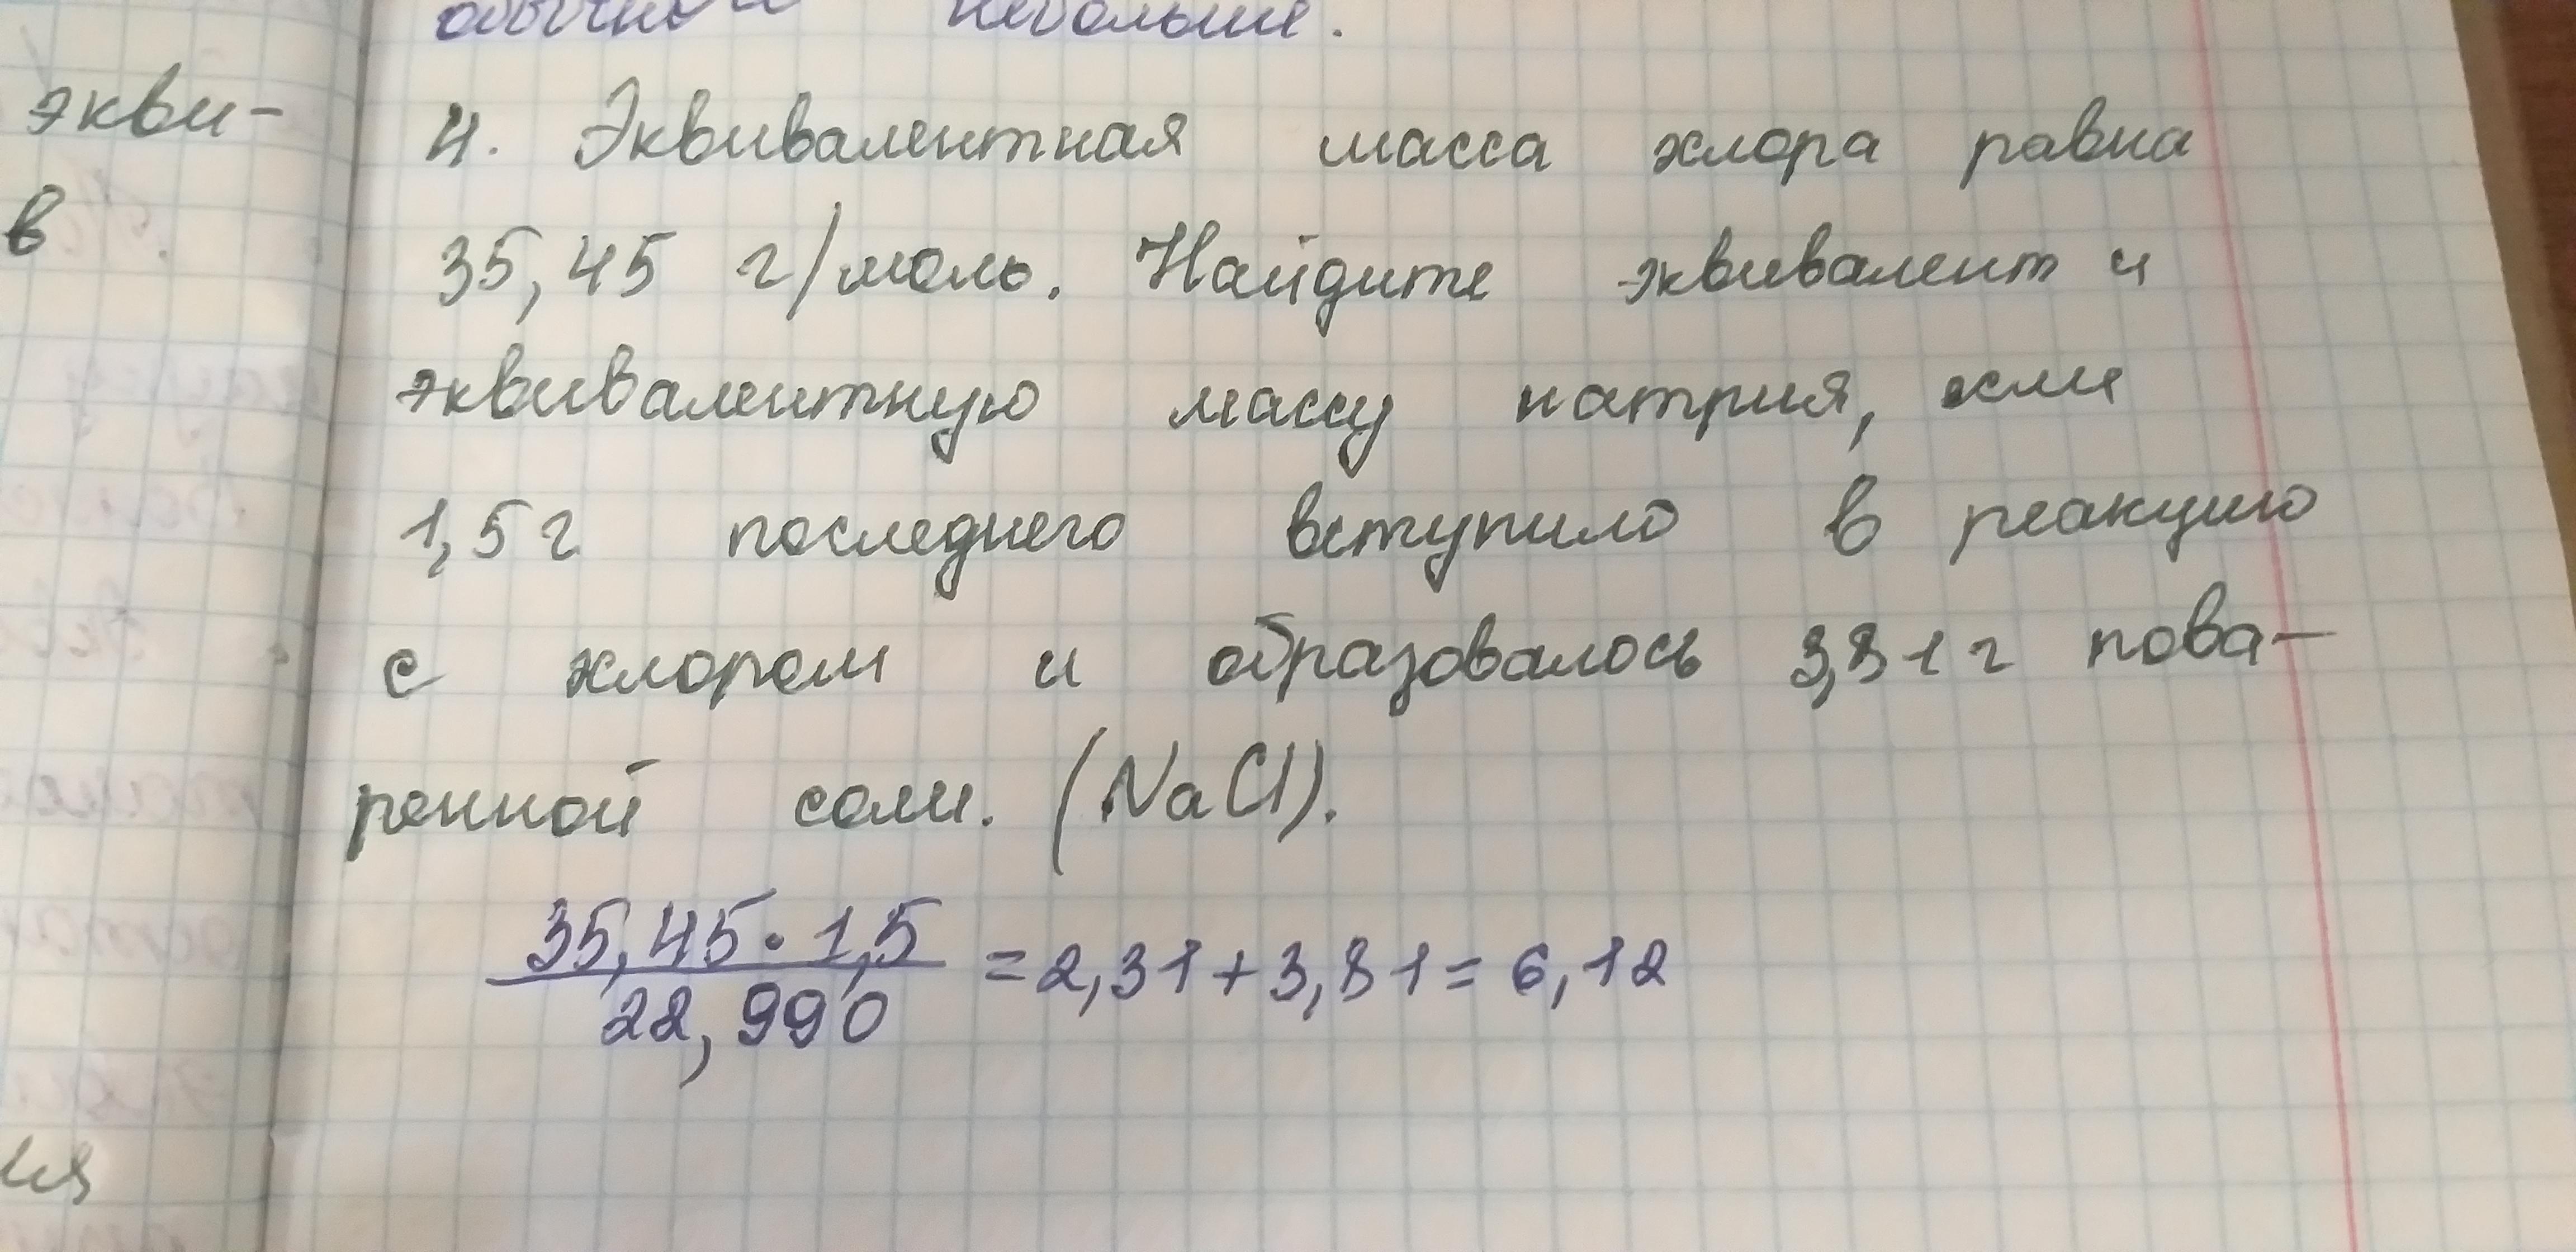 обычно небольше.
экви-
в
4. Эквивалентная масса хлора равна
35,45 г/моль. Найдите эквивалент и
эквивалентную массу натрия, если
1,5 г последнего вступило в реакцию
с хлором и образовалось 3,81 г пова-
ренной соли. (NaCl).
35,45 · 1,5
22,990
= 2,31 + 3,81 = 6,12
ия